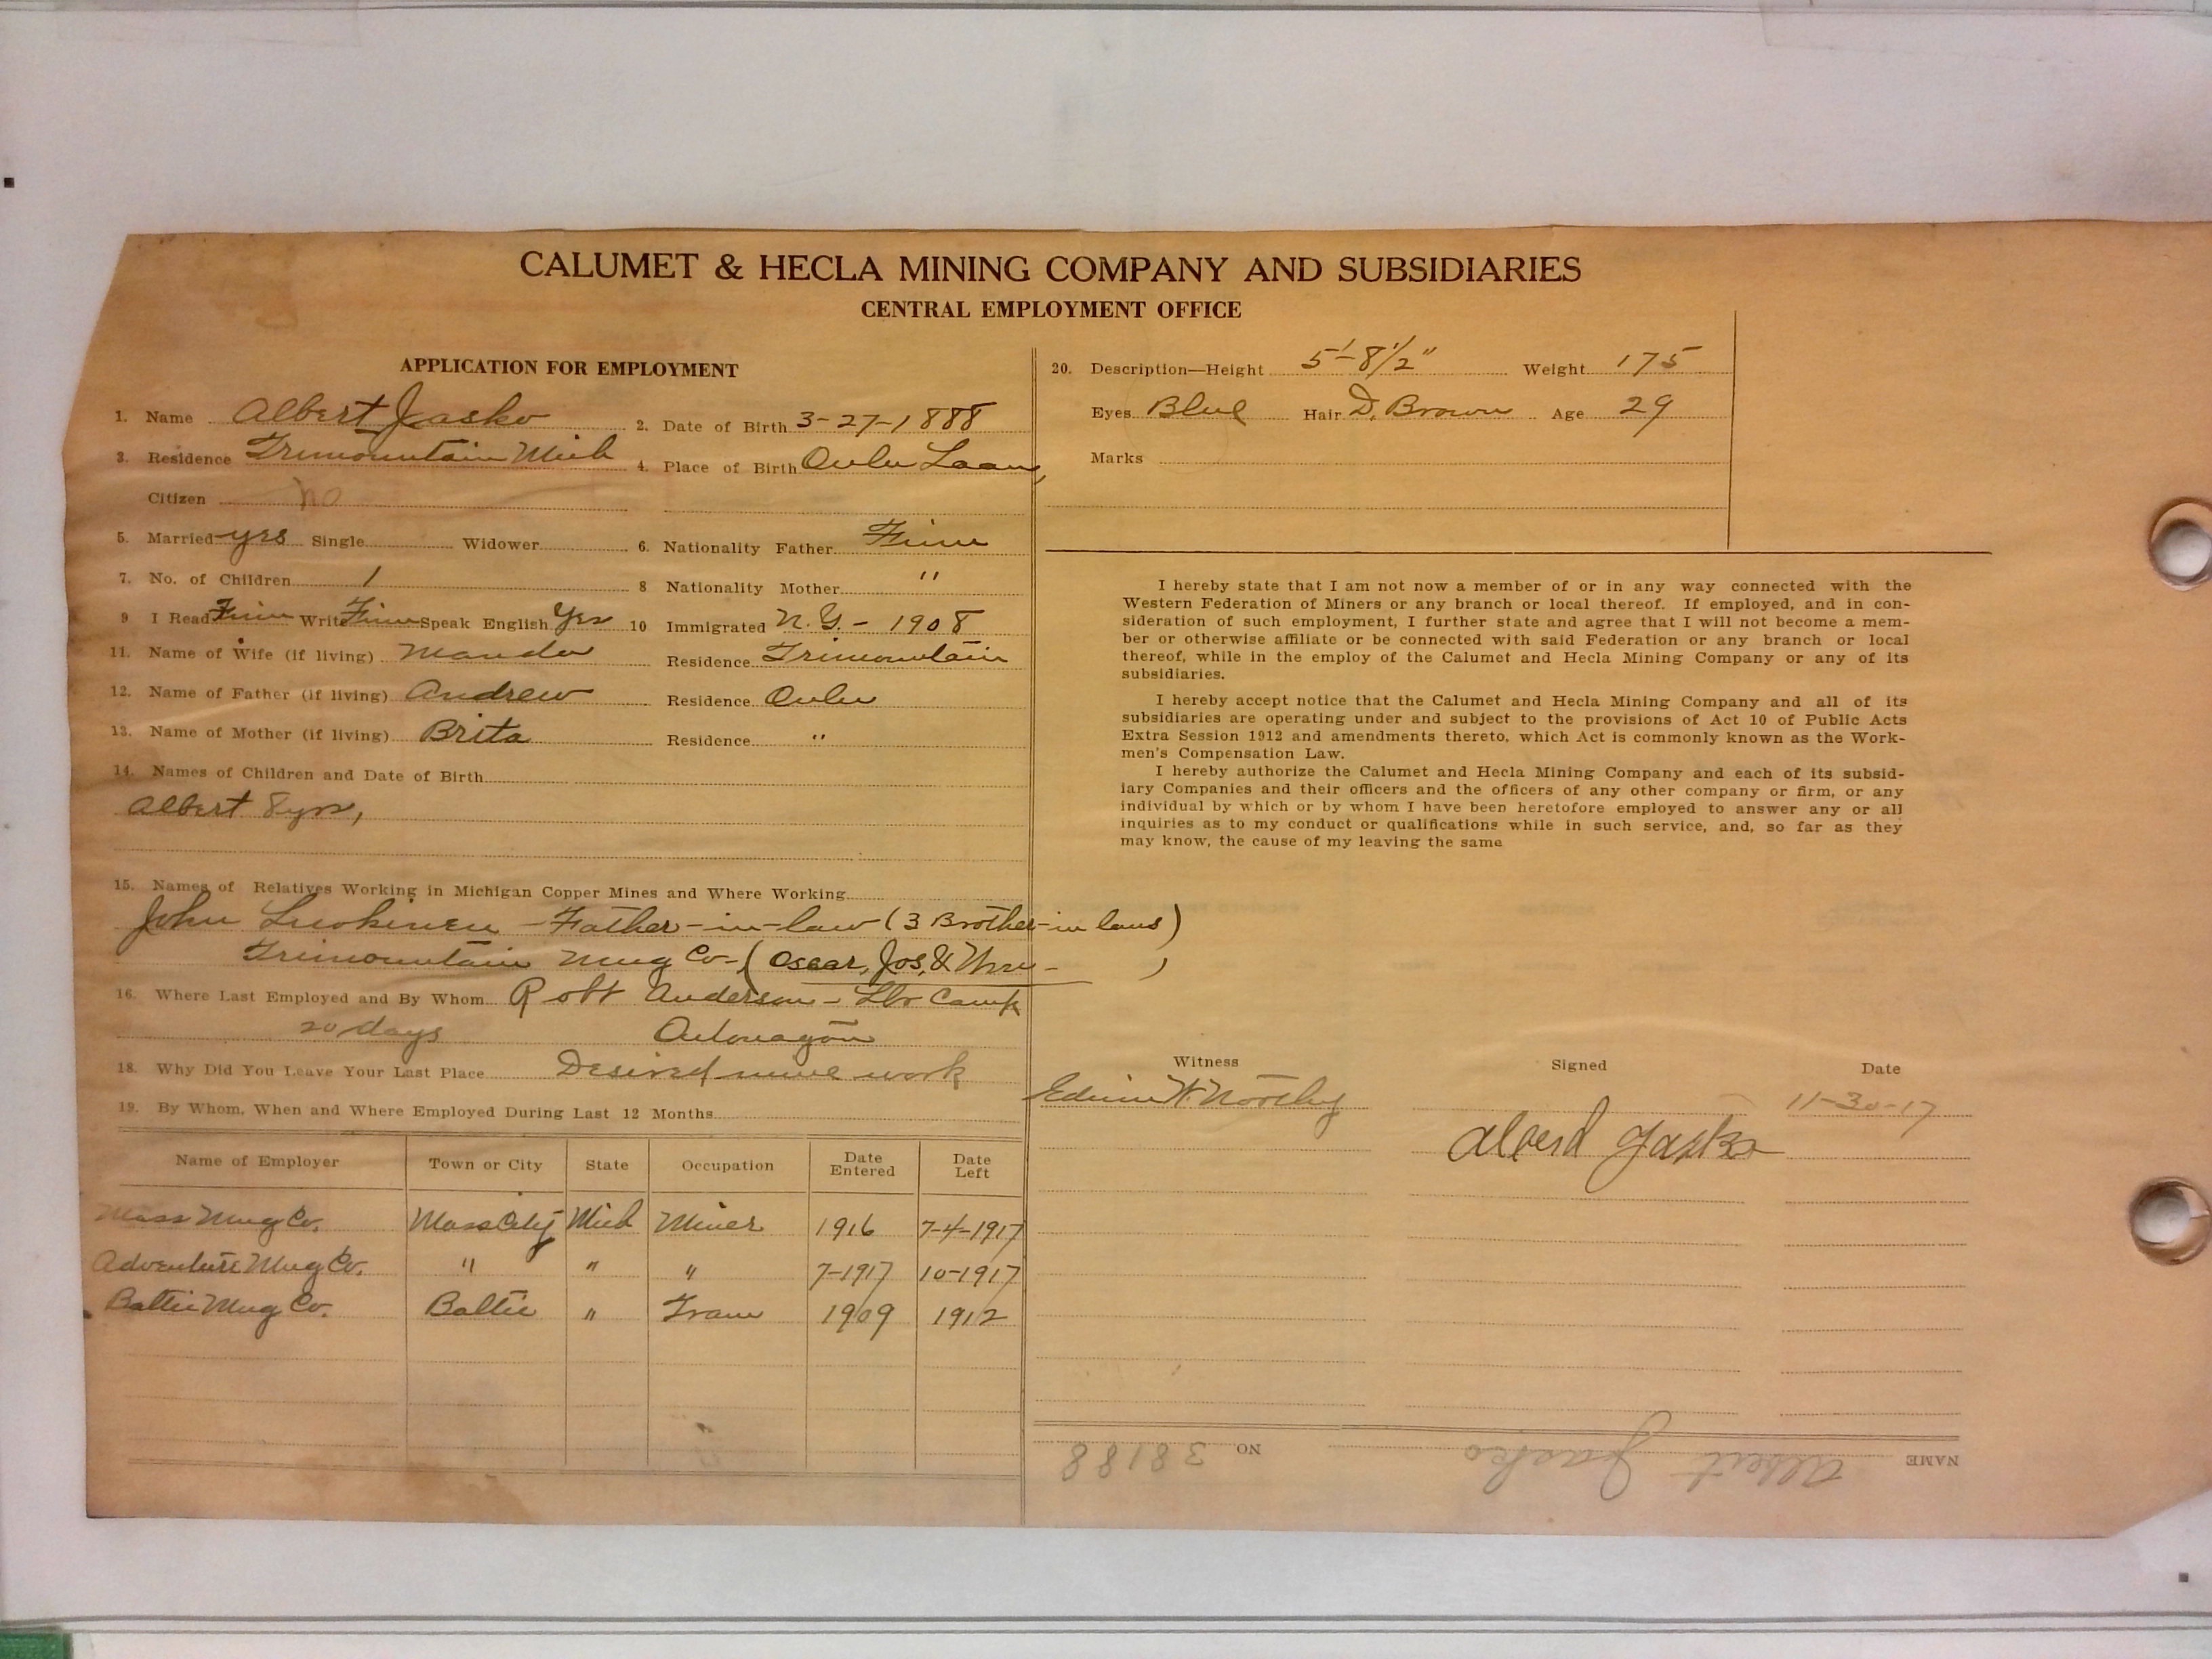 CALUMET & HECLA MINING COMPANY AND SUBSIDIARIES
CENTRAL EMPLOYMENT OFFICE
APPLICATION FOR EMPLOYMENT
1. Name Albert Jasko 2. Date of Birth 3-27-1888
3. Residence Trimountain Mich 4. Place of Birth Oulu Laani,
Citizen no
5. Married yes Single Widower 6. Nationality Father Finn
7. No. of Children 1 8 Nationality Mother "
9 I Read Finn Write Finn Speak English Yes 10 Immigrated N.Y. - 1908
11. Name of Wife (if living) Manda Residence Trimountain
12. Name of Father (if living) Andrew Residence Oulu
13. Name of Mother (if living) Brita Residence "
14. Names of Children and Date of Birth
Albert 8 yrs,
15. Names of Relatives Working in Michigan Copper Mines and Where Working
John Luokinen - Father-in-law (3 Brother-in laws)
Trimountain Mng Co- (Oscar, Jos, & Wm - )
16. Where Last Employed and By Whom Robt Anderson - Lbr Camp
20 days Ontonagon
18. Why Did You Leave Your Last Place Desired mine work
19. By Whom, When and Where Employed During Last 12 Months
Name of Employer Town or City State Occupation Date Entered Date Left
Mass Mng Co. Mass City Mich Miner 1916 7-4-1917
Adventure Mng Co. " " " 7-1917 10-1917
Baltic Mng Co. Baltic " Tram 1909 1912
20. Description—Height 5'-8 1/2" Weight 175
Eyes Blue Hair D. Brown Age 29
Marks
I hereby state that I am not now a member of or in any way connected with the
Western Federation of Miners or any branch or local thereof. If employed, and in con-
sideration of such employment, I further state and agree that I will not become a mem-
ber or otherwise affiliate or be connected with said Federation or any branch or local
thereof, while in the employ of the Calumet and Hecla Mining Company or any of its
subsidiaries.
I hereby accept notice that the Calumet and Hecla Mining Company and all of its
subsidiaries are operating under and subject to the provisions of Act 10 of Public Acts
Extra Session 1912 and amendments thereto, which Act is commonly known as the Work-
men's Compensation Law.
I hereby authorize the Calumet and Hecla Mining Company and each of its subsid-
iary Companies and their officers and the officers of any other company or firm, or any
individual by which or by whom I have been heretofore employed to answer any or all
inquiries as to my conduct or qualifications while in such service, and, so far as they
may know, the cause of my leaving the same
Witness Signed Date
Edwin W. 11-30-17
Albert Jasko
NAME Albert Jasko NO 38188